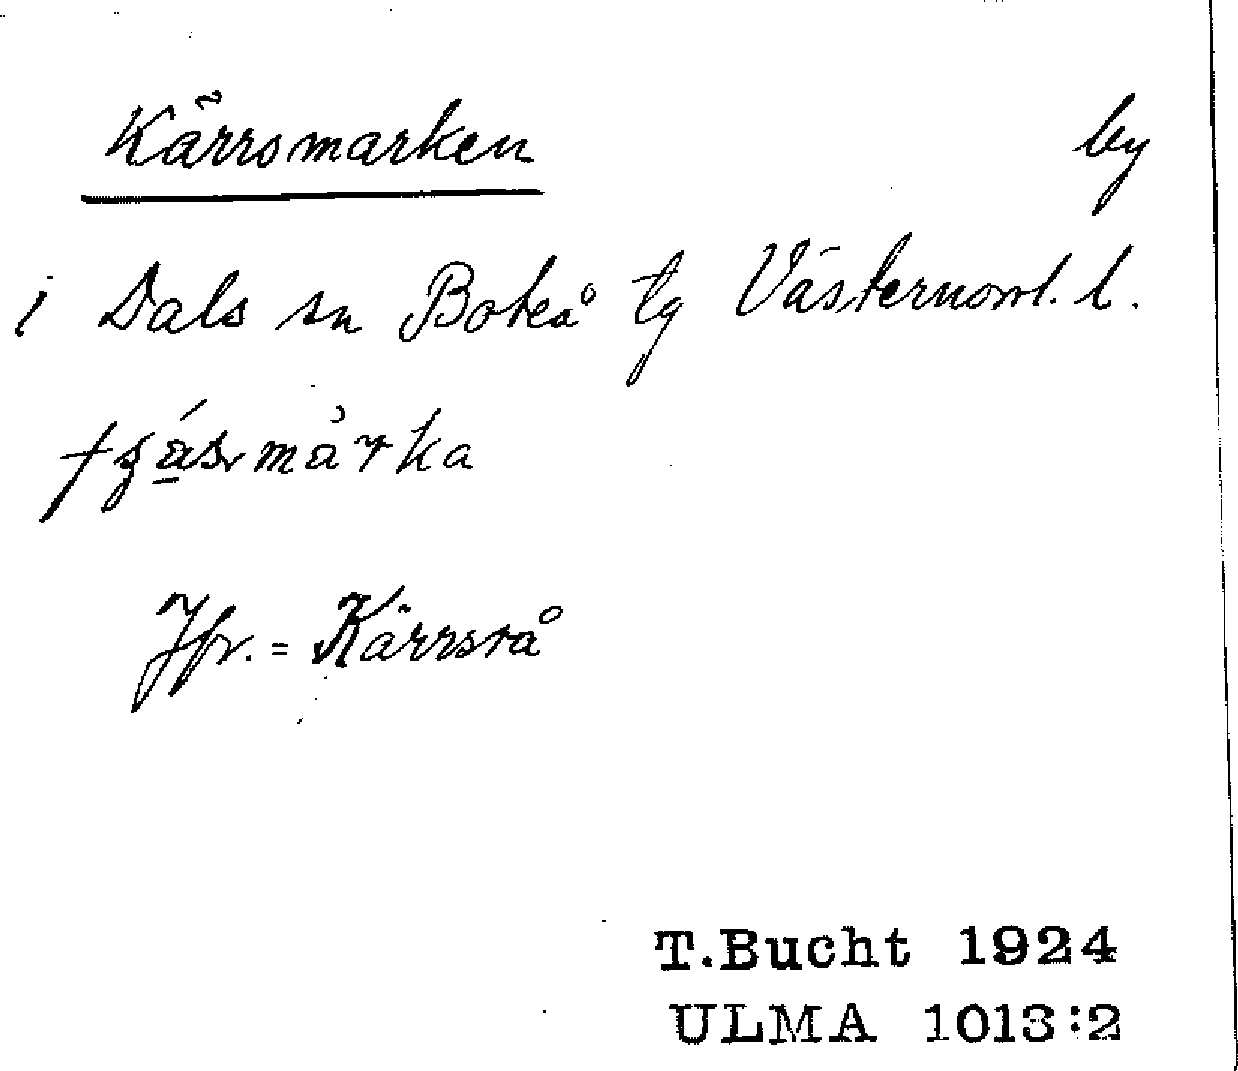 Kärrsmarken by
i Dals sn Boteå tg Västernorrl. l.
Jfr. = Kärrsrå
T.Bucht 1924
ULMA 1013:2